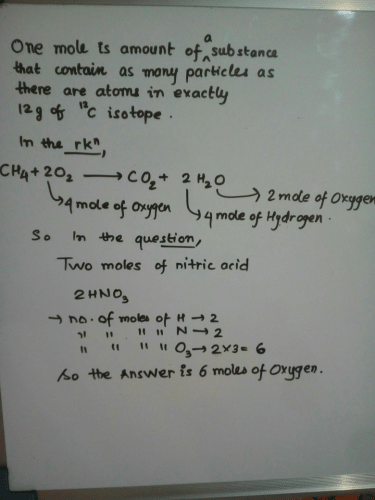 One mole is amount of a substance
that contain as many particles as
there are atoms in exactly
12g of ¹²C isotope.
In the rkⁿ,
CH4 + 2O2 ⟶ CO2 + 2 H2O
→ 2 mole of Oxygen
→ 4 mole of Oxygen → 4 mole of Hydrogen.
So In the question,
Two moles of nitric acid
2HNO3
→ no. of moles of H → 2
" " " " N → 2
" " " " O3 → 2×3 = 6
So the Answer is 6 moles of Oxygen.